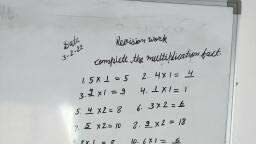 Date
3-2-22
Revision work
complete the multiplication fact.
1. 5 × 1 = 5 2. 4 × 1 = 4
3. 9 × 1 = 9 4. 1 × 1 = 1
5. 4 × 2 = 8 6. 3 × 2 = 6
7. 5 × 2 = 10 8. 9 × 2 = 18
× 1 = 8 10. 6 × 1 = 6